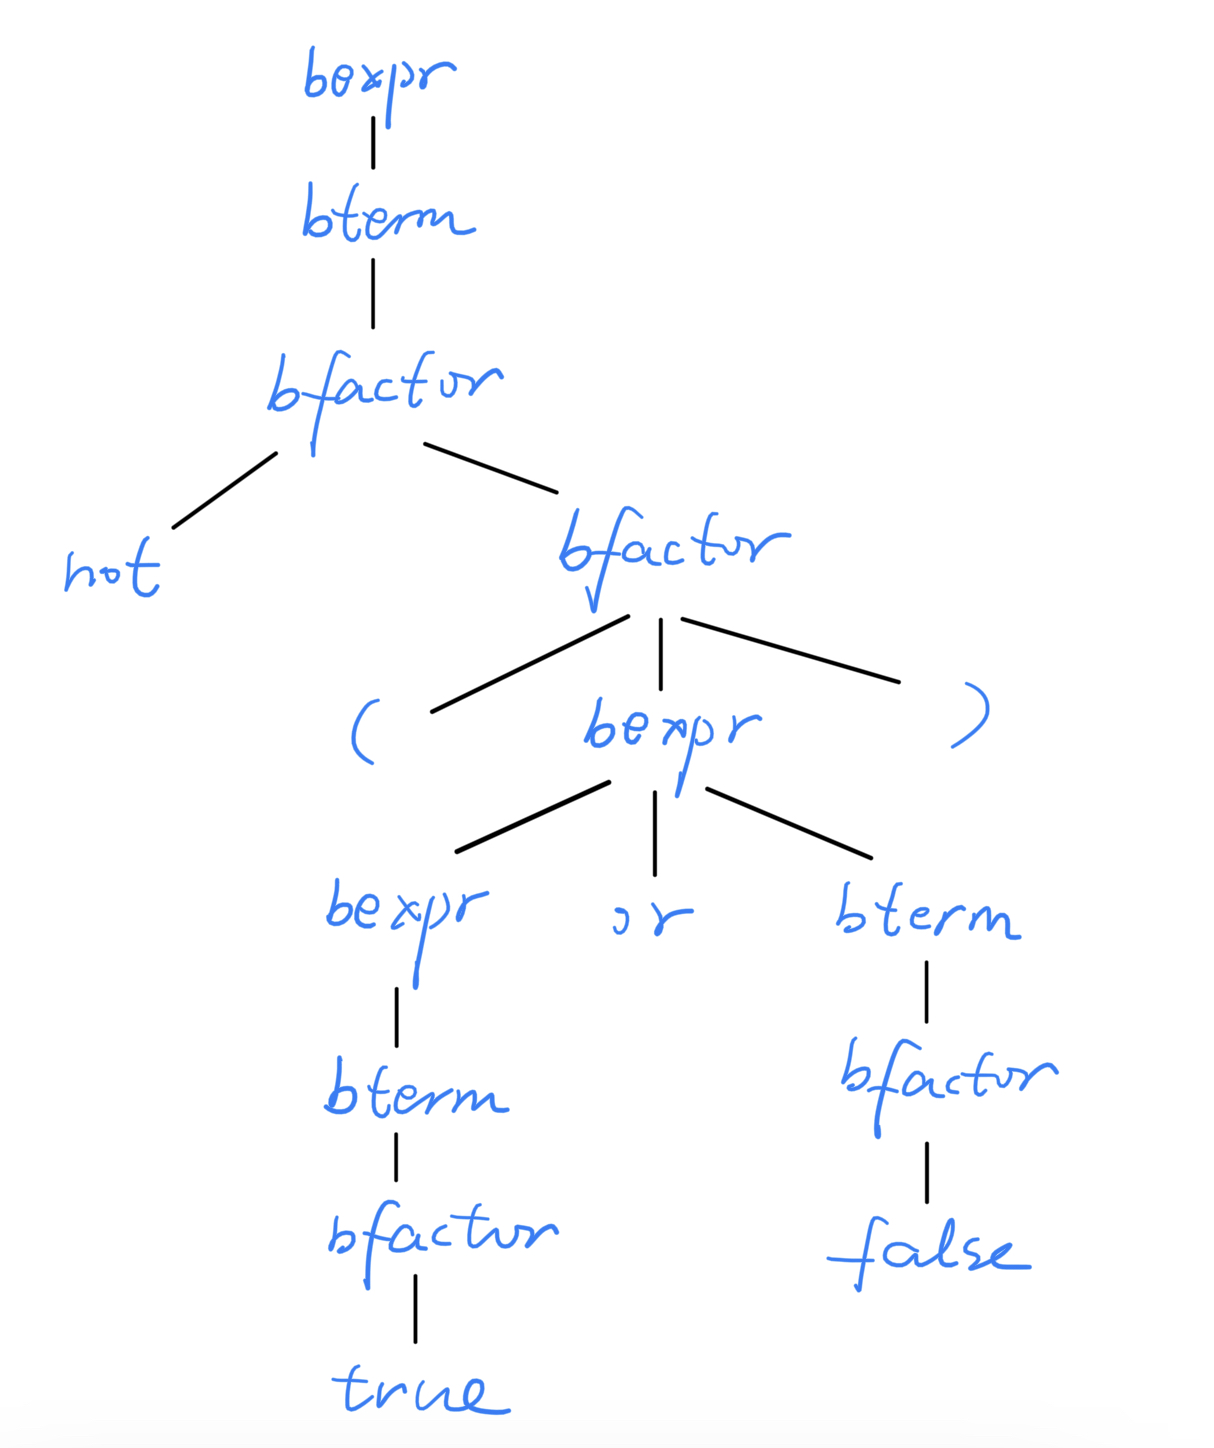 bexpr
bterm
bfactor
not
bfactor
( bexpr )
bexpr or bterm
bterm bfactor
bfactor false
true